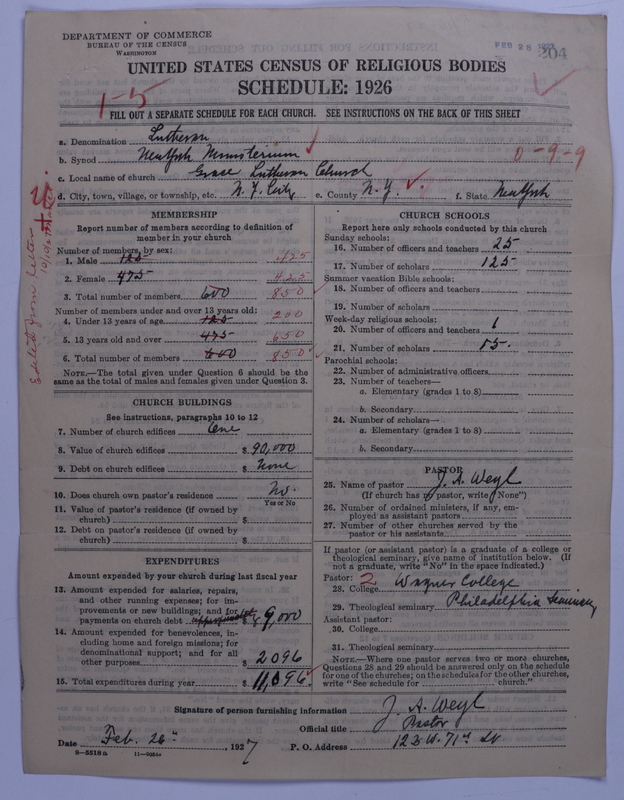 DEPARTMENT OF COMMERCE
BUREAU OF THE CENSUS
WASHINGTON
FEB 28
204
UNITED STATES CENSUS OF RELIGIOUS BODIES
SCHEDULE: 1926
1-5
FILL OUT A SEPARATE SCHEDULE FOR EACH CHURCH. SEE INSTRUCTIONS ON THE BACK OF THIS SHEET
a. Denomination Lutheran
b. Synod New York Ministerium
0-9-9
c. Local name of church Grace Lutheran Church
d. City, town, village, or township, etc. N. Y. City e. County N.Y. f. State New York
MEMBERSHIP
Report number of members according to definition of
member in your church
Number of members, by sex:
1. Male 125 425
2. Female 475 425
3. Total number of members 600 850
Number of members under and over 13 years old:
4. Under 13 years of age 125 200
5. 13 years old and over 475 650
6. Total number of members 600 850
NOTE.—The total given under Question 6 should be the
same as the total of males and females given under Question 3.
CHURCH BUILDINGS
See instructions, paragraphs 10 to 12
7. Number of church edifices One
8. Value of church edifices $ 90,000
9. Debt on church edifices $ None
10. Does church own pastor's residence No.
Yes or No
11. Value of pastor's residence (if owned by
church) $
12. Debt on pastor's residence (if owned by
church) $
EXPENDITURES
Amount expended by your church during last fiscal year
13. Amount expended for salaries, repairs,
and other running expenses; for im-
provements or new buildings; and for
payments on church debt $ 9,000
14. Amount expended for benevolences, in-
cluding home and foreign missions; for
denominational support; and for all
other purposes $ 2096
15. Total expenditures during year $ 11,096
CHURCH SCHOOLS
Report here only schools conducted by this church
Sunday schools:
16. Number of officers and teachers 25
17. Number of scholars 125
Summer vacation Bible schools:
18. Number of officers and teachers
19. Number of scholars
Week-day religious schools:
20. Number of officers and teachers 1
21. Number of scholars 15.
Parochial schools:
22. Number of administrative officers
23. Number of teachers—
a. Elementary (grades 1 to 8)
b. Secondary
24. Number of scholars—
a. Elementary (grades 1 to 8)
b. Secondary
PASTOR
25. Name of pastor J. A. Weyl
(If church has no pastor, write "None")
26. Number of ordained ministers, if any, em-
ployed as assistant pastors
27. Number of other churches served by the
pastor or his assistants
If pastor (or assistant pastor) is a graduate of a college or
theological seminary, give name of institution below. (If
not a graduate, write "No" in the space indicated.)
Pastor: 2
28. College Wagner College
29. Theological seminary Philadelphia Seminary
Assistant pastor:
30. College
31. Theological seminary
NOTE.—Where one pastor serves two or more churches,
Questions 28 and 29 should be answered only on the schedule
for one of the churches; on the schedules for the other churches,
write "See schedule for church."
Signature of person furnishing information J. A. Weyl
Official title Pastor
Date Feb. 26th, 1927 P. O. Address 123 W. 71st St
8-5518a 11-9264a